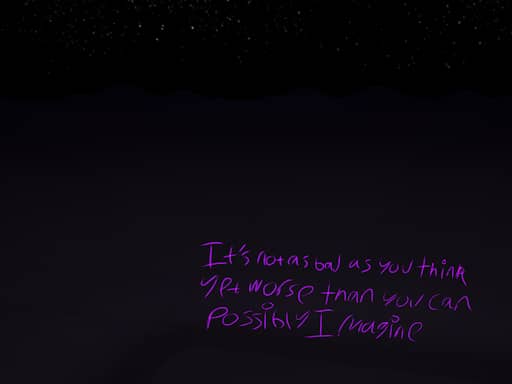 It's not as bad as you think
yet worse than you can
possibly Imagine